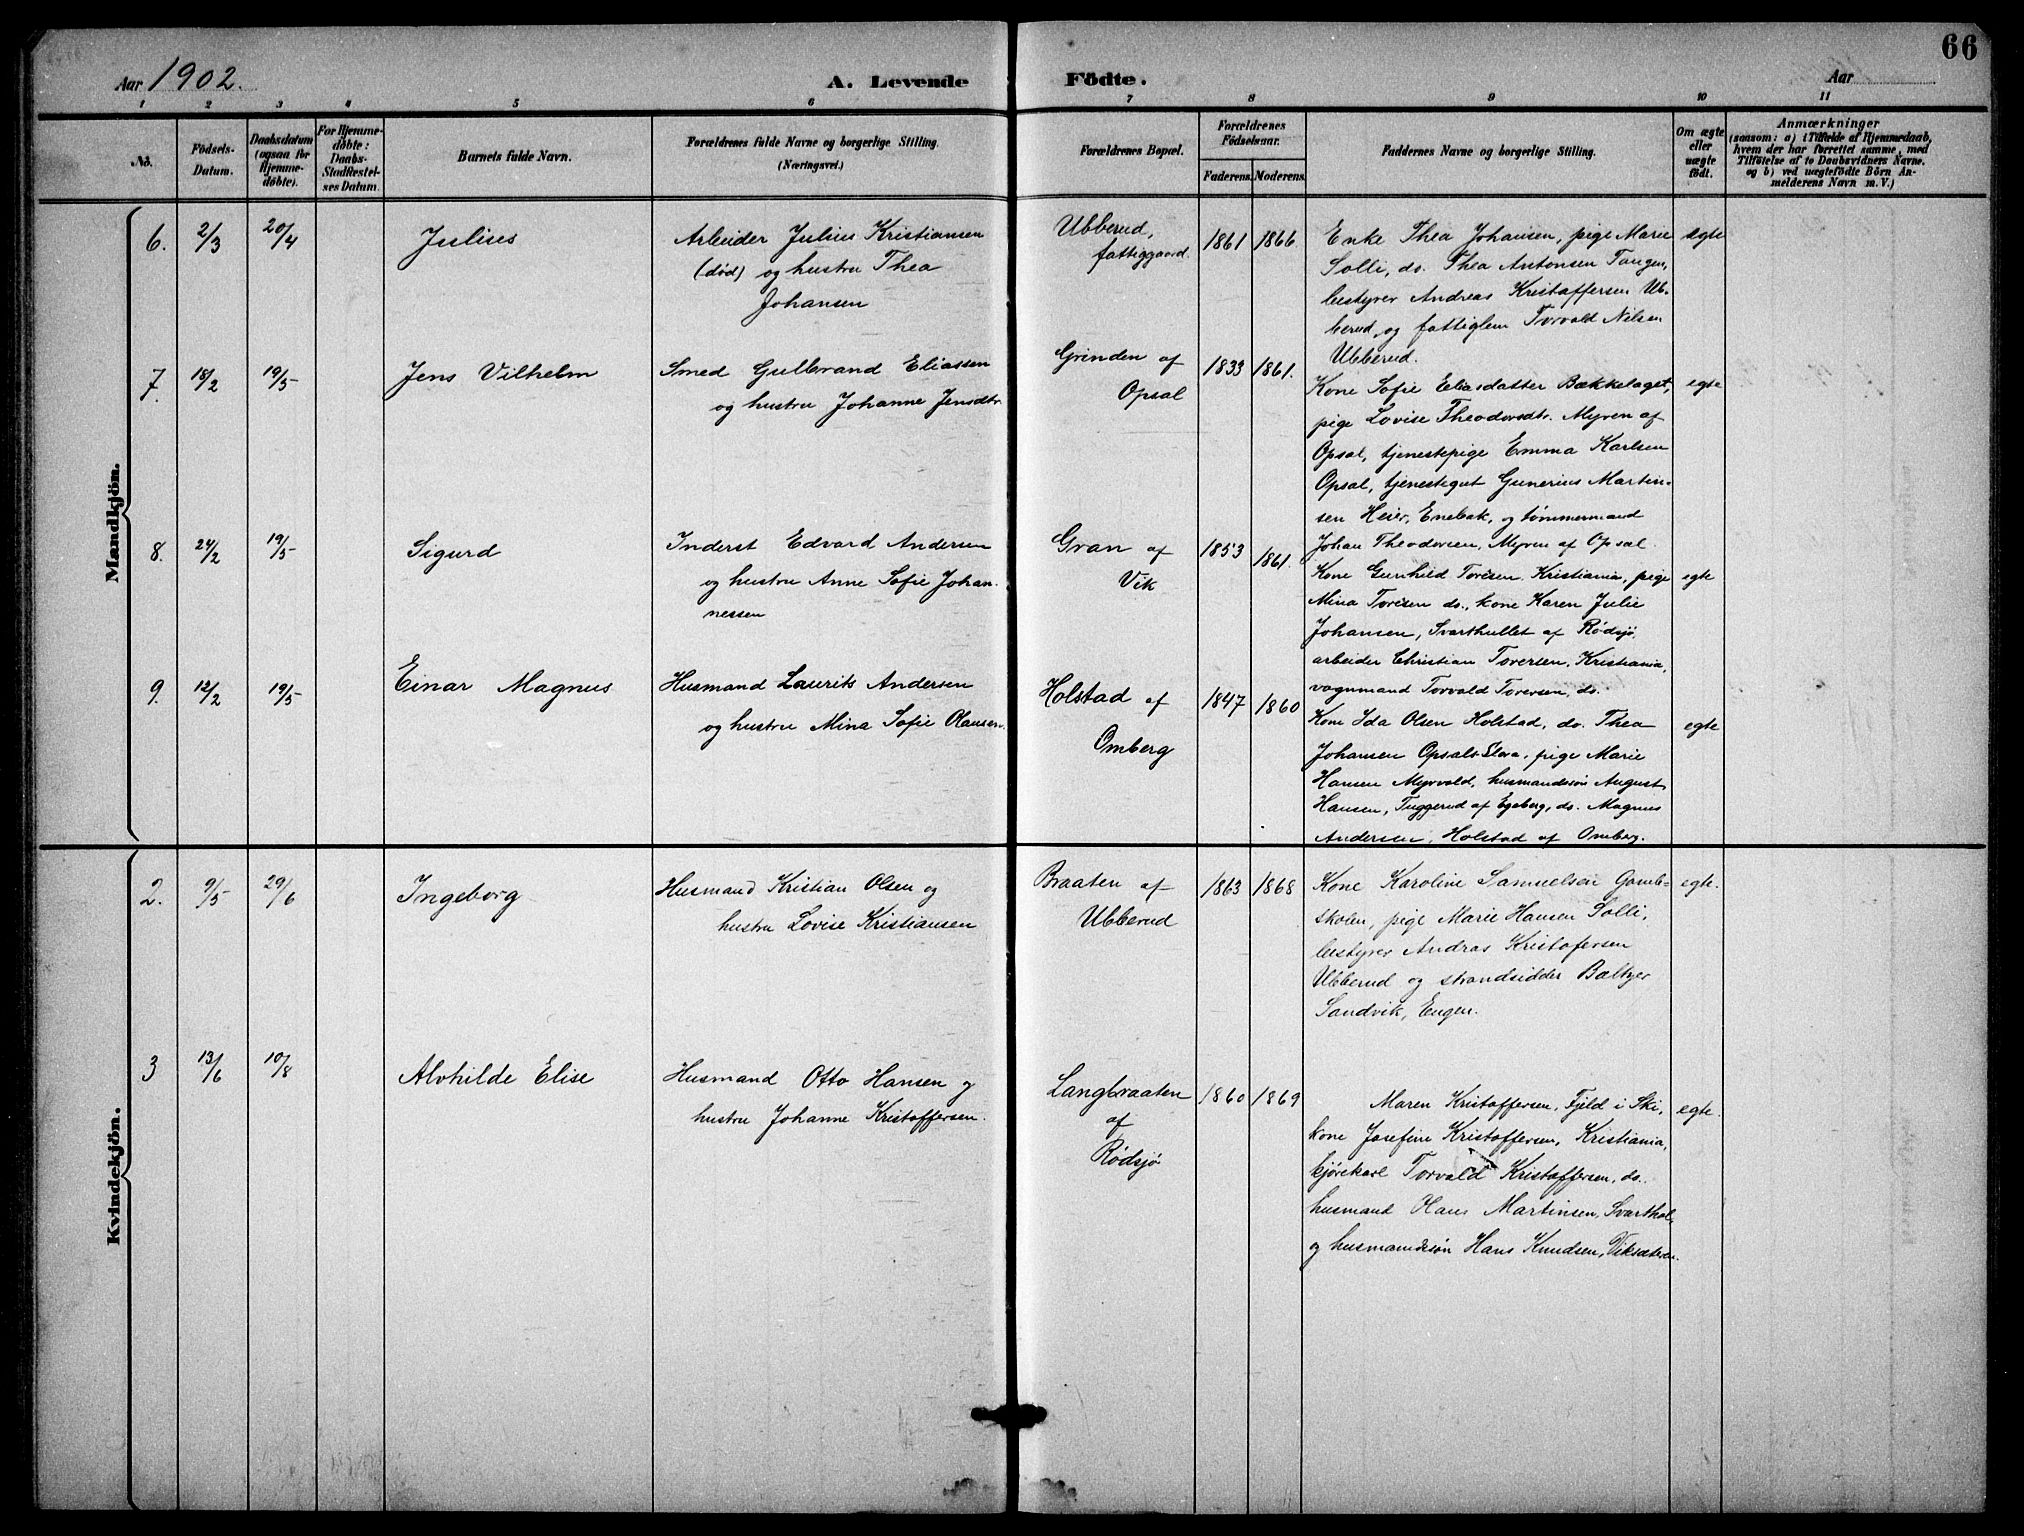 66
Aar 1902.
A. Levende Födte.
Aar
1 2 3 4 5 6 7 8 9 10 11
No.
Födsels-
Datum.
Daabsdatum
(ogsaa for
Hjemme-
døbte).
For Hjemme-
døbte:
Daabs-
Stadfæstel-
ses Datum.
Barnets fulde Navn.
Forældrenes fulde Navne og borgerlige Stilling.
(Næringsvei.)
Forældrenes Bopæl.
Forældrenes
Födselsaar.
Faderens. Moderens.
Faddernes Navne og borgerlige Stilling.
Om ægte
eller
uægte
født.
Anmærkninger
(saasom: a) i Tilfælde af Hjemmedaab,
hvem der har forrettet samme, med
Tilföielse af to Daabsvidners Navne.
og b) ved uægtefödte Börn An-
melderens Navn m. V.)
Mandkjön.
6. 2/3 20/4 Julius
Arbeider Julius Kristiansen
(död) og hustru Thea
Johansen
Ubberud,
fattiggaard.
1861 1866
Enke Thea Johansen, pige Marie
Solli, do. Thea Antonsen Tangen,
bestyrer Andreas Kristoffersen Ub-
berud, og fattiglem Torvald Nilsen
Ubberud.
ægte
7. 18/2 19/5 Jens Vilhelm
Smed Gulbrand Eliassen
og hustru Johanne Jensdtr.
Grinden af
Opsal
1833 1861.
Kone Sofie Eliasdatter Bækkelaget,
pige Lovise Theodorsdtr. Myren af
Opsal, tjenestepige Emma Karlsen
Opsal, tjenestegut Gunerius Martin-
sen Heier, Enebak, og tømmermand
Johan Theodorsen, Myren af Opsal.
egte
8. 24/2 19/5 Sigurd
Inderst Edvard Andersen
og hustru Anne Sofie Johan-
nessen
Gran af
Vik
1853 1861.
Kone Gunhild Toresen, Kristiania, pige
Mina Toresen do., kone Karen Julie
Johansen, Svarthullet af Rødsjø,
arbeider Christian Toversen, Kristiania,
vognmand Torvald Toversen, do.
egte
9. 12/2 19/5 Einar Magnus
Husmand Laurits Andersen
og hustru Mina Sofie Olausen.
Holstad af
Omberg
1847 1860
Kone Ida Olsen Holstad, do. Thea
Johansen Opsals- , pige Marie
Hansen Myrvold, husmandssøn August
Hansen, Tuggerud af Egeberg, do. Magnus
Andersen, Holstad af Omberg.
egte
Kvindekjön.
2. 9/5 29/6 Ingeborg
Husmand Kristian Olsen og
hustru Lovise Kristiansen
Braaten af
Ubberud
1863 1868
Kone Karoline Samuelsen
skolen, pige Marie Hansen Solli,
bestyrer Andras Kristofersen
Ubberud og strandsidder Baltzer
Sandvik, Engen.
egte.
3 13/6 10/8 Alvhilde Elise
Husmand Otto Hansen og
hustru Johanne Kristoffersen.
Langbraaten
af
Rødsjø
1860 1869
Maren Kristoffersen, Fjeld i Ski,
kone Josefine Kristoffersen, Kristiania,
kjørekarl Torvald Kristoffersen, do.,
husmand Hans Martinsen, Svarthol,
og husmandssøn Hans Knudsen, Viksæteren.
egte.